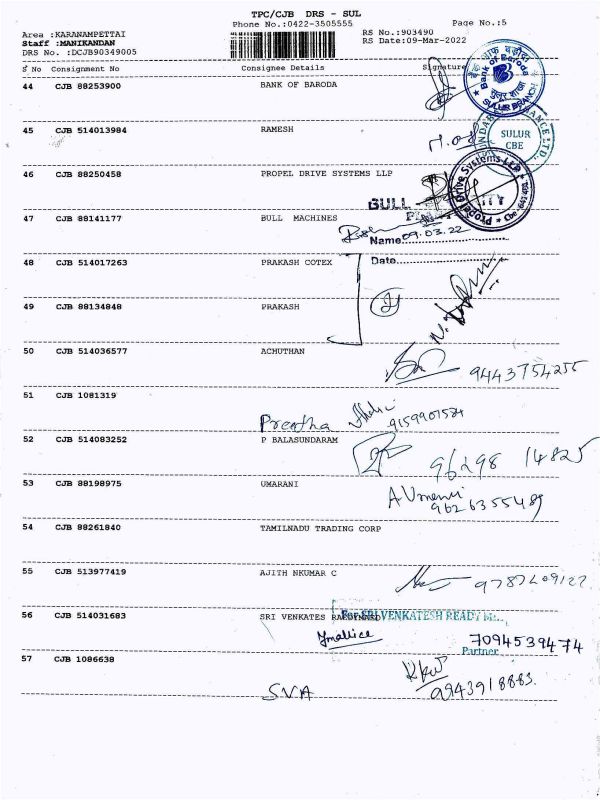 TPC/CJB DRS - SUL
Phone No.:0422-3505555
Page No.:5
Area :KARANAMPETTAI
Staff :MANIKANDAN
DRS No. :DCJB90349005
RS No.:903490
RS Date:09-Mar-2022
S No Consignment No Consignee Details Signature
44 CJB 88253900 BANK OF BARODA
बैंक ऑफ़ बड़ौदा
Bank of Baroda
सुलूर शाखा
SULUR BRANCH
45 CJB 514013984 RAMESH
SULUR
CBE
46 CJB 88250458 PROPEL DRIVE SYSTEMS LLP
Propel Drive Systems LLP
Cbe 641 402
BULL
47 CJB 88141177 BULL MACHINES
Name 09.03.22
Date
48 CJB 514017263 PRAKASH COTEX
49 CJB 88134848 PRAKASH
50 CJB 514036577 ACHUTHAN
9443754255
51 CJB 1081319
Preetha 9159901584
52 CJB 514083252 P BALASUNDARAM
96298 14825
53 CJB 88198975 UMARANI
9626355489
54 CJB 88261840 TAMILNADU TRADING CORP
55 CJB 513977419 AJITH NKUMAR C
56 CJB 514031683 SRI VENKATES
For SRI VENKATESH READY
7094539474
Partner
57 CJB 1086638
SVA 9943918883